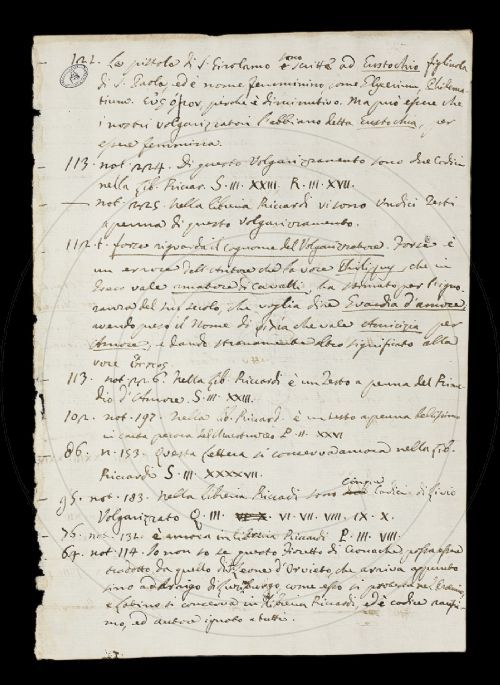 122. Le pistole di S. Girolamo sono scritte ad Eustochio figliuola
di S. Paola, ed è nome femminino, come Glycerium, Philema-
tium. perché è diminutivo. Ma può essere che
i nostri volgarizzatori l'abbiano detta Eustochia, per
essere femmina.
113. not. 224. Di questo Volgarizzamento sono due Codici
nella Lib. Riccar. S. III. XXIII. R. III. XVII.
— not. 225. Nella Libreria Riccardi vi sono Undici Testi
a penna di questo volgarizzamento.
forse riguarda il Cognome del Volgarizzatore. Forse è
un errore dell'Autore che la voce che in
Greco vale amatore di Cavalli, ha stimato per l'igno-
ranza del suo secolo, che voglia dire Guardia d'amore,
avendo preso il Nome di che vale Amicizia per
Amore, e dando stranamente altro significato alla
voce
113. not. 226. Nella Lib. Riccardi è un Testo a penna del Rime-
dio d'Amore. S. III. XXIII.
102. not. 197. Nella Lib. Riccardi è un testo a penna bellissimo
in carta pecora P. II. XXVI
86. n. 153. Questa lettera si conserva ancora nella Lib.
Riccardi S. III. XXXXVII.
95. not. 183. Nella Libreria Riccardi sono cinque Codici di Livio
Volgarizzato Q. III. VI. VII. VIII. IX. X.
76. not. 132. è ancora in Libreria Riccardi P. III. VIII.
64. not. 114. Io non so se questo Fioretto di Cronache possa essere
tradotto da quello di Leone d'Orvieto, che arriva appunto
sino ad Arrigo di come esso si
e latino si conserva in Libreria Riccardi, ed è codice raris-
simo, ed autore ignoto a tutti.